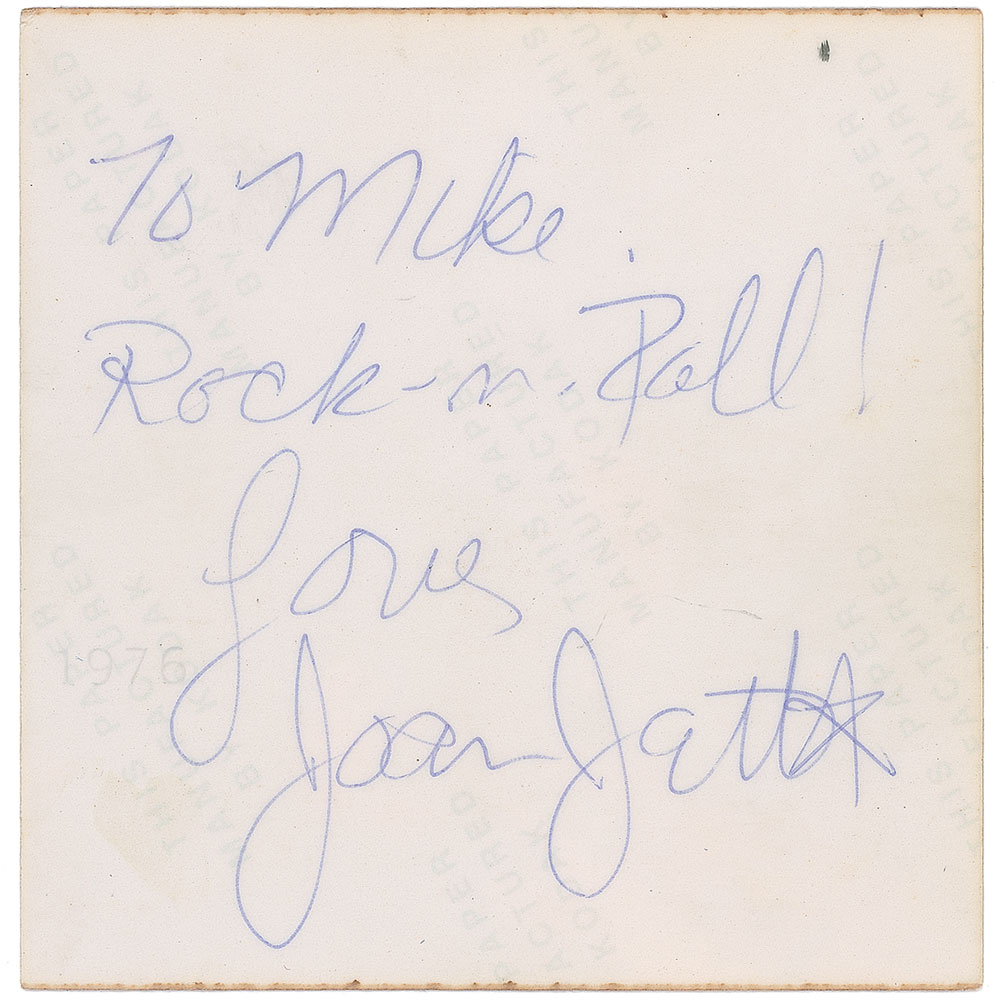 To Mike
Rock-n-Roll!
Love
Joan Jett
1976
THIS PAPER
MANUFACTURED
BY KODAK